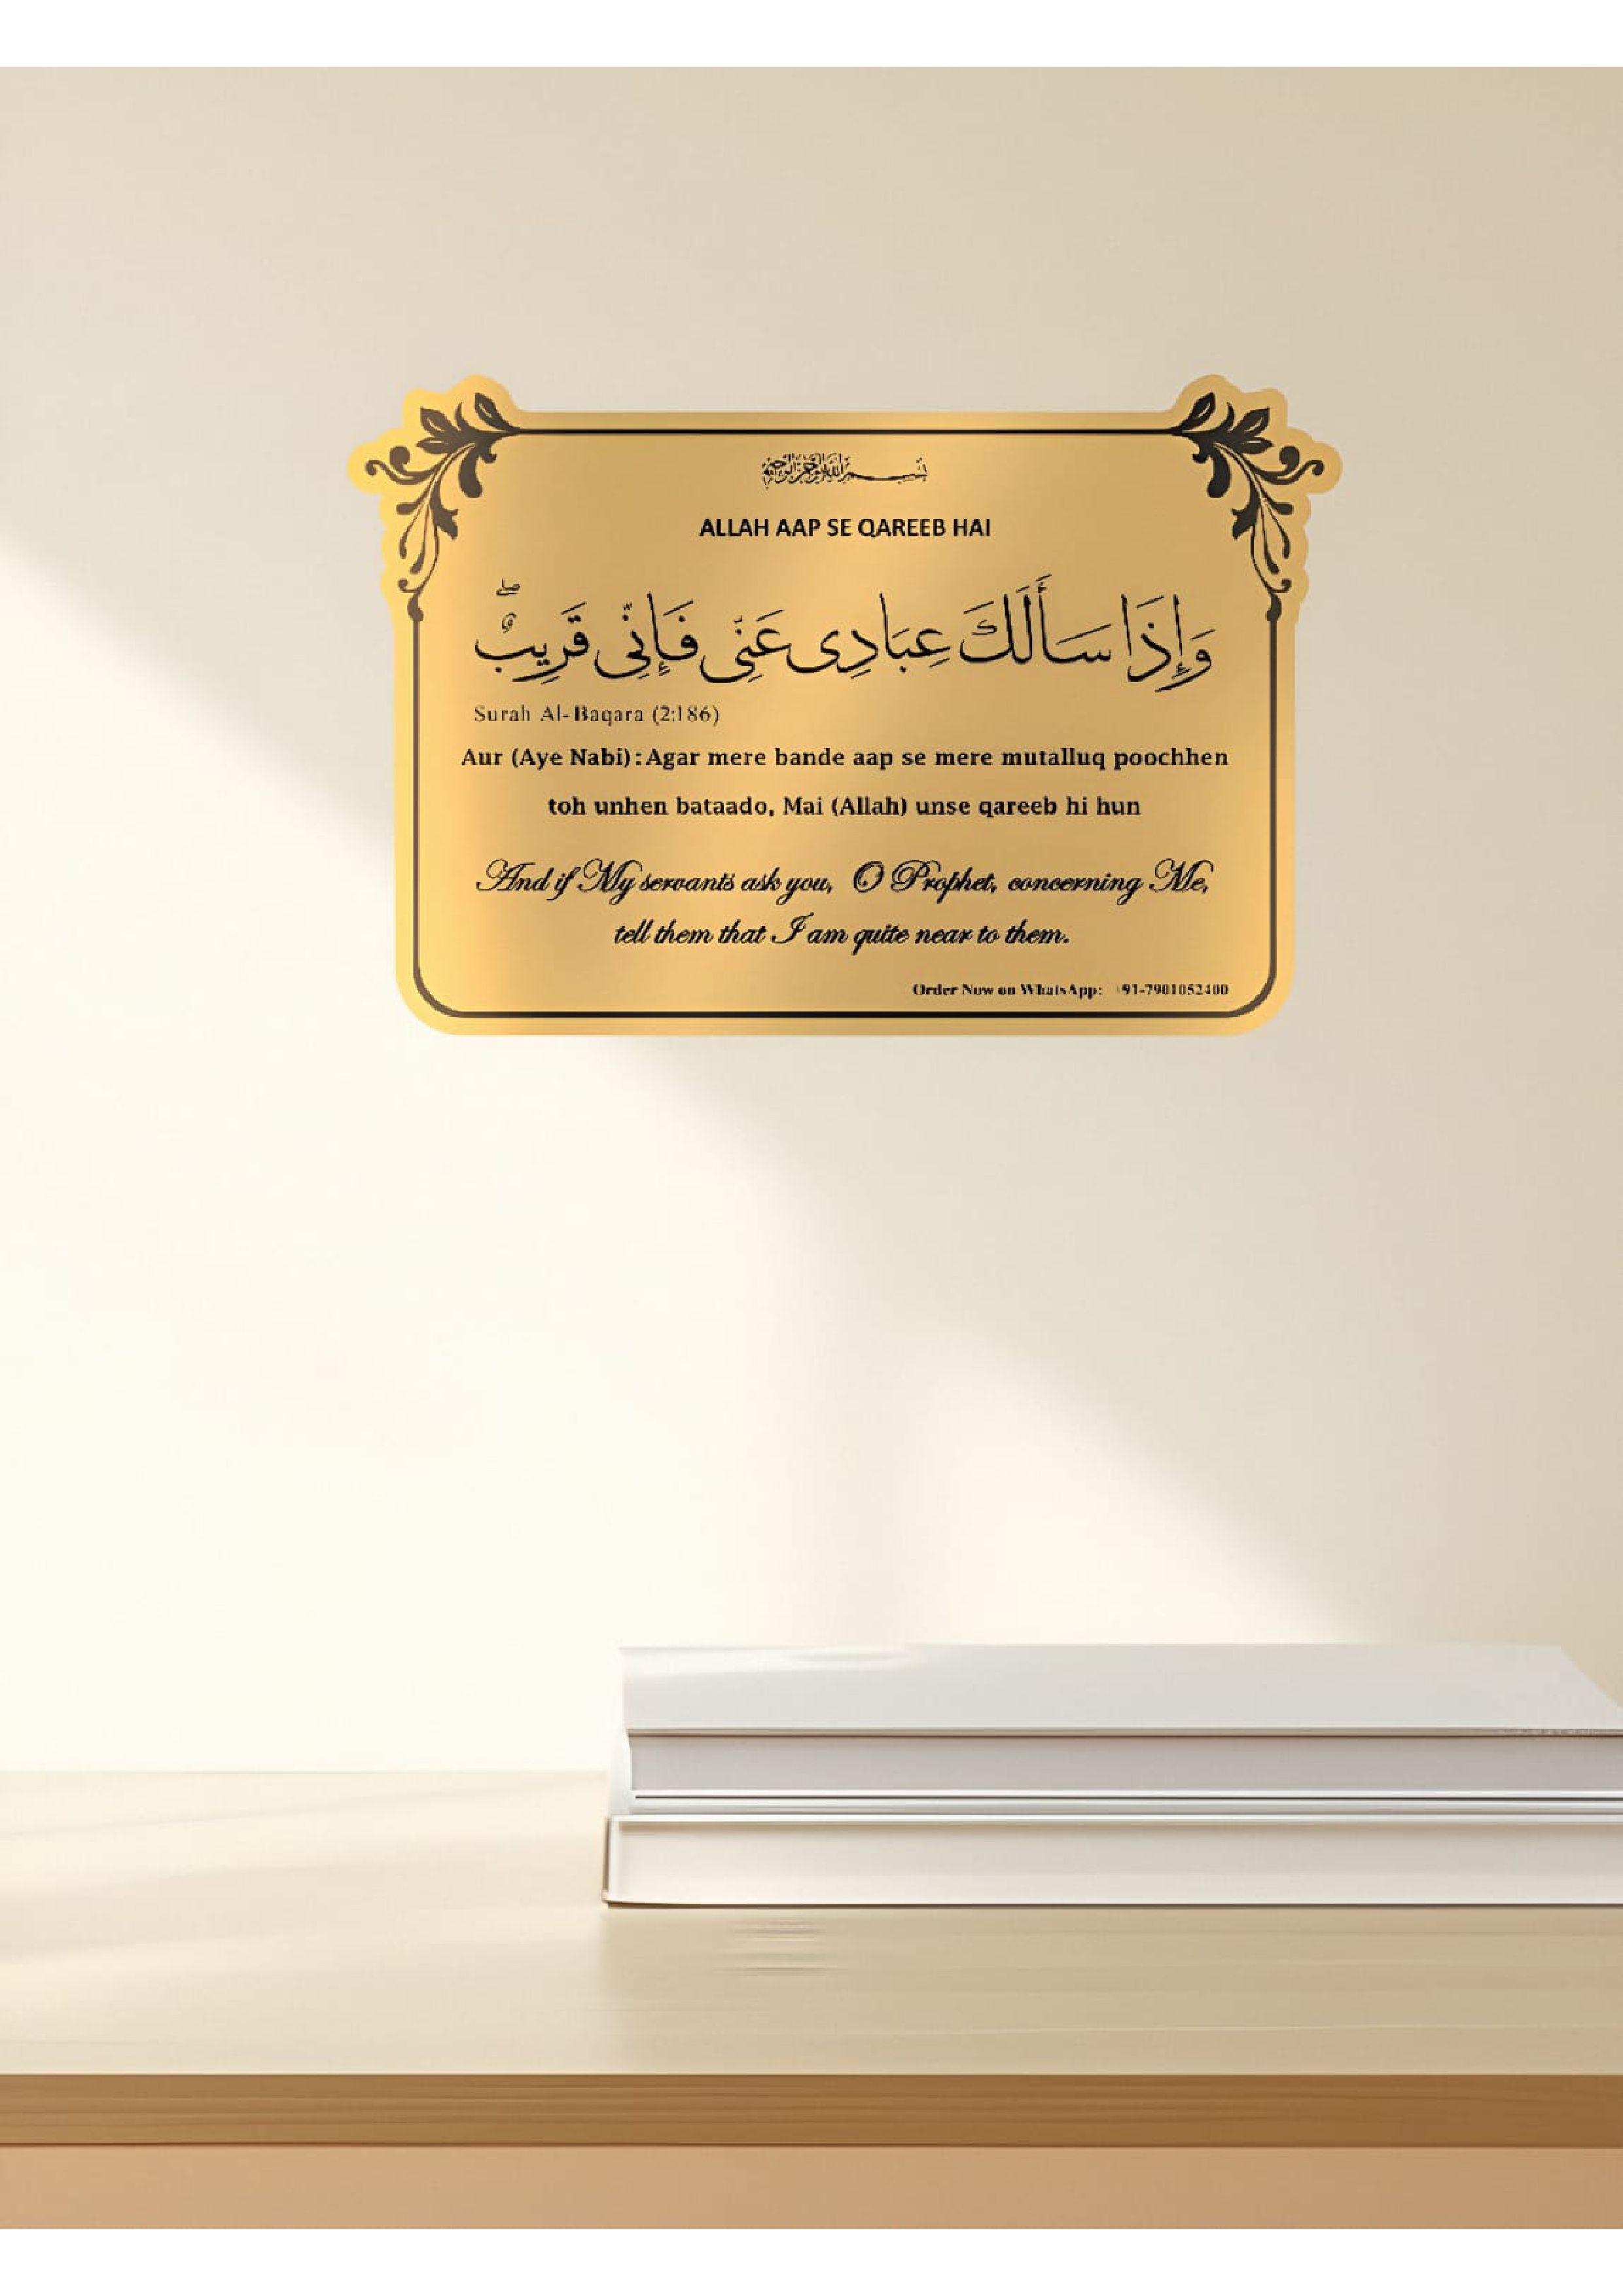 بسم الله الرحمن الرحيم
ALLAH AAP SE QAREEB HAI
وَإِذَا سَأَلَكَ عِبَادِى عَنِّى فَإِنِّى قَرِيبٌ ۖ
Surah Al-Baqara (2:186)
Aur (Aye Nabi): Agar mere bande aap se mere mutalluq poochhen
toh unhen bataado, Mai (Allah) unse qareeb hi hun
And if My servants ask you, O Prophet, concerning Me,
tell them that I am quite near to them.
Order Now on WhatsApp: +91-7901052400